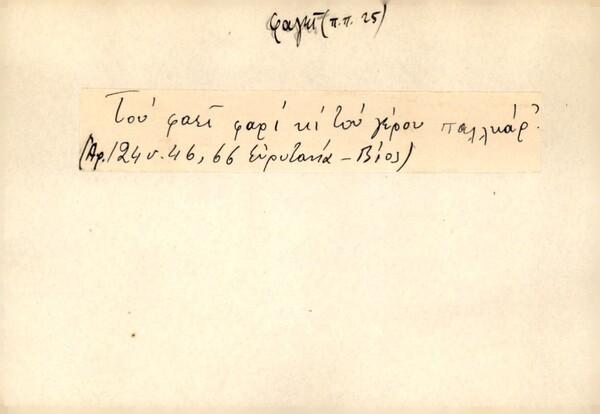 φαγεῖ (π.π. 25)
Τού φαεῖ φαρί κί τού γέρου παλλκάρ'
(Ἀρ. 124 σ. 46, 66 Εὐρυτανία - Βίος)